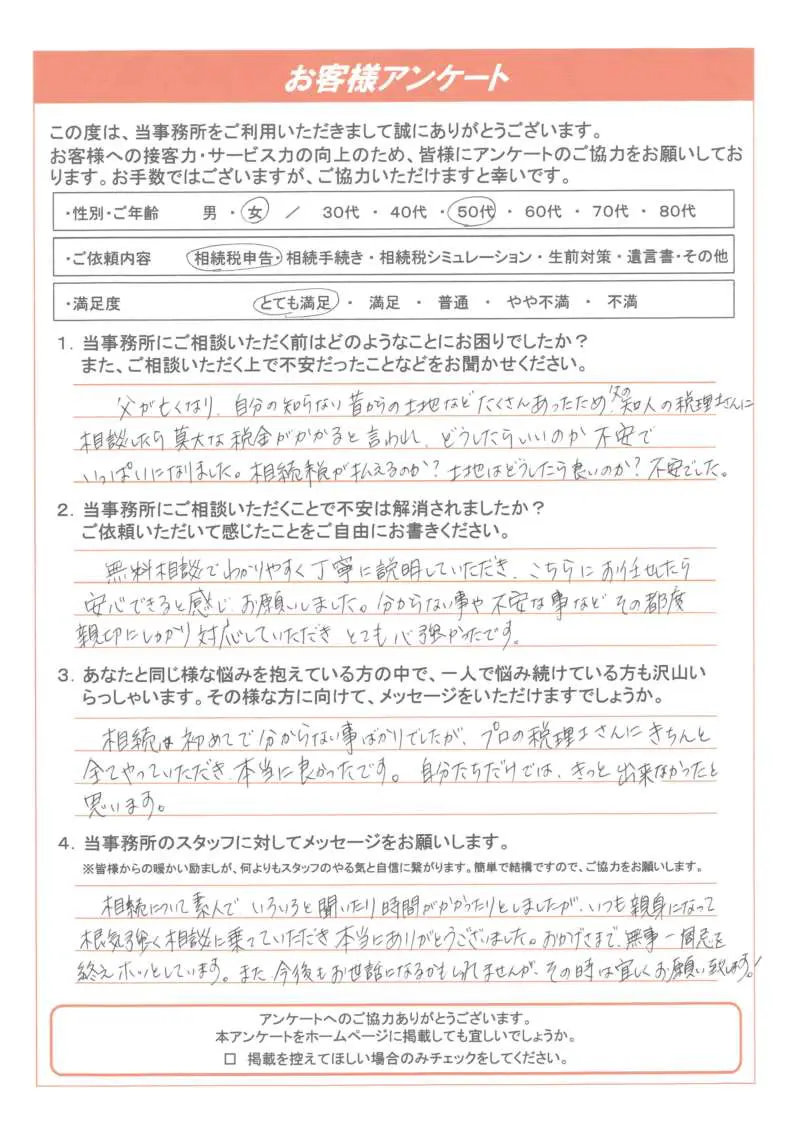 お客様アンケート
この度は、当事務所をご利用いただきまして誠にありがとうございます。
お客様への接客力・サービス力の向上のため、皆様にアンケートのご協力をお願いしてお
ります。お手数ではございますが、ご協力いただけますと幸いです。
・性別・ご年齢 男 ・ 女 ／ 30代 ・ 40代 ・ 50代 ・ 60代 ・ 70代 ・ 80代
・ご依頼内容 相続税申告・相続手続き・相続税シミュレーション・生前対策・遺言書・その他
・満足度 とても満足 ・ 満足 ・ 普通 ・ やや不満 ・ 不満
1．当事務所にご相談いただく前はどのようなことにお困りでしたか？
また、ご相談いただく上で不安だったことなどをお聞かせください。
父が亡くなり、自分の知らない昔からの土地などたくさんあったため、父の知人の税理士さんに
相談したら莫大な税金がかかると言われ、どうしたらいいのか不安で
いっぱいになりました。相続税が払えるのか？土地はどうしたら良いのか？不安でした。
2．当事務所にご相談いただくことで不安は解消されましたか？
ご依頼いただいて感じたことをご自由にお書きください。
無料相談でわかりやすく丁寧に説明していただき、こちらにお任せしたら
安心できると感じ、お願いしました。分からない事や不安な事など その都度
親切にしっかり対応していただき とても心強かったです。
3．あなたと同じ様な悩みを抱えている方の中で、一人で悩み続けている方も沢山い
らっしゃいます。その様な方に向けて、メッセージをいただけますでしょうか。
相続は初めてで分からない事ばかりでしたが、プロの税理士さんにきちんと
全てやっていただき、本当に良かったです。 自分たちだけでは、きっと出来なかったと
思います。
4．当事務所のスタッフに対してメッセージをお願いします。
※皆様からの暖かい励ましが、何よりもスタッフのやる気と自信に繋がります。簡単で結構ですので、ご協力をお願いします。
相続について素人で いろいろと聞いたり時間がかかったりとしましたが、いつも親身になって
根気強く相談に乗っていただき本当にありがとうございました。おかげさまで、無事一周忌を
終えホッとしています。また今後もお世話になるかもしれませんが、その時は宜しくお願い致します！
アンケートへのご協力ありがとうございます。
本アンケートをホームページに掲載しても宜しいでしょうか。
□ 掲載を控えてほしい場合のみチェックをしてください。